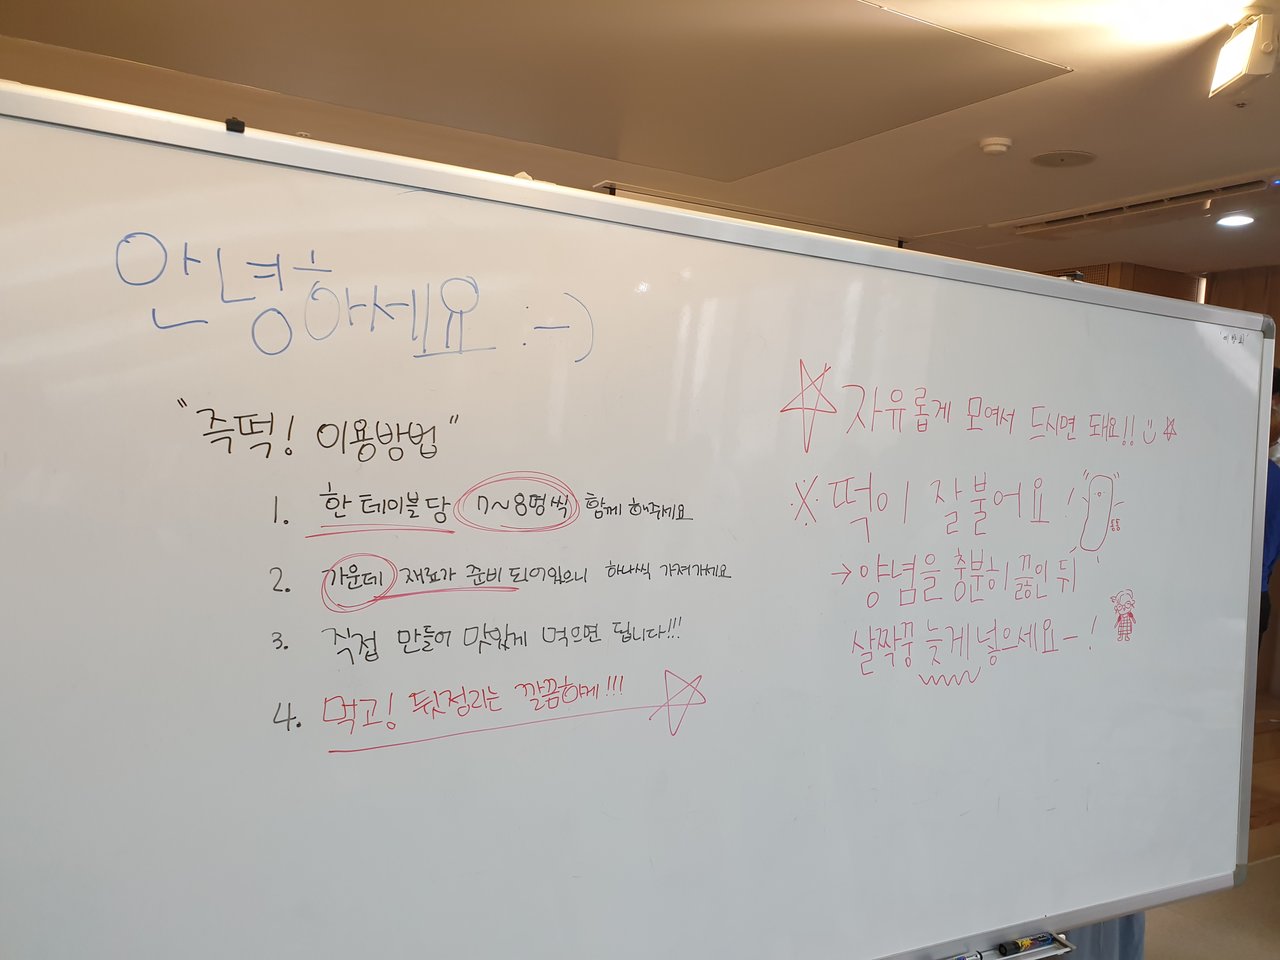 안녕하세요 :-)
"즉떡! 이용방법"
1. 한 테이블 당 7~8명씩 함께 해주세요
2. 가운데 재료가 준비 되어있으니 하나씩 가져가세요
3. 직접 만들어 맛있게 먹으면 됩니다!!!
4. 먹고! 뒷정리는 깔끔하게!!!
자유롭게 모여서 드시면 돼요!!
※ 떡이 잘불어요!
퉁퉁
→ 양념을 충분히 끓인 뒤
살짝쿵 늦게 넣으세요-!